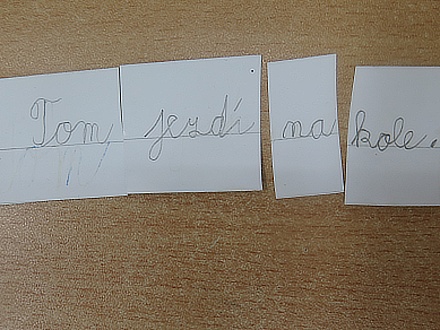 Tom jezdí na kole.